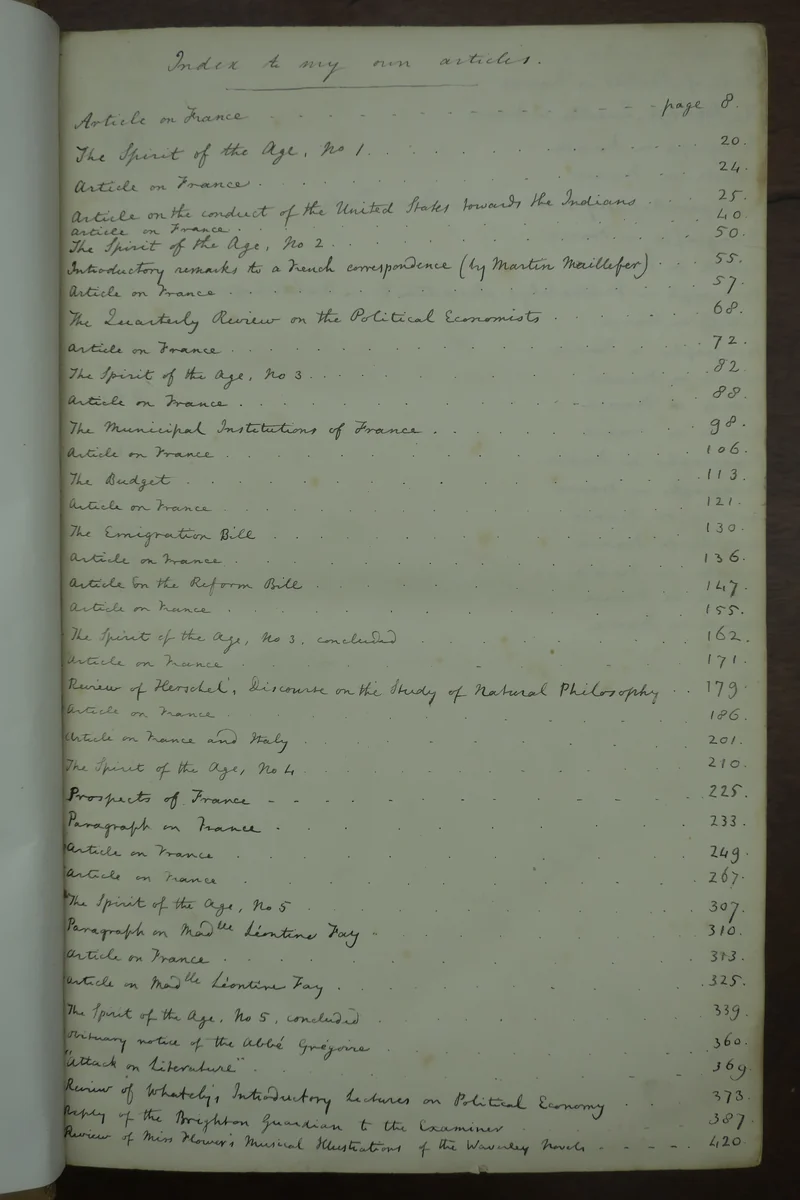 Index to my own articles.
Article on France page 8.
The Spirit of the Age, No 1. 20.
Article on France. 24.
Article on the conduct of the United States towards the Indians 25.
article on France. 40.
The Spirit of the Age, No 2. 50.
Introductory remarks to a French correspondence (by Martin Maillefer) 55.
Article on France 57.
The Quarterly Review on the Political Economists 68.
Article on France 72.
The Spirit of the Age, No 3. 82.
Article on France 88.
The Municipal Institutions of France 98.
Article on France 106.
The Budget 113.
Article on France 121.
The Emigration Bill 130.
Article on France 136.
Article on the Reform Bill 147.
Article on France 155.
The Spirit of the Age, No 3, concluded 162.
Article on France 171.
Review of Herschel's Discourse on the Study of Natural Philosophy 179.
Article on France 186.
Article on France and Italy 201.
The Spirit of the Age, No 4 210.
Prospects of France 225.
Paragraph on France 233.
Article on France 249.
Article on France 267.
The Spirit of the Age, No 5 307.
Paragraph on Madlle Léontine Fay 310.
Article on France 313.
Article on Madlle Léontine Fay 325.
The Spirit of the Age, No 5, concluded 339.
Obituary notice of the Abbé Grégoire 360.
"Attack on Literature" 369.
Review of Whately's Introductory Lectures on Political Economy 373.
Reply of the Brighton Guardian to the Examiner 387.
Review of Miss Flower's Musical Illustrations of the Waverley Novels 420.